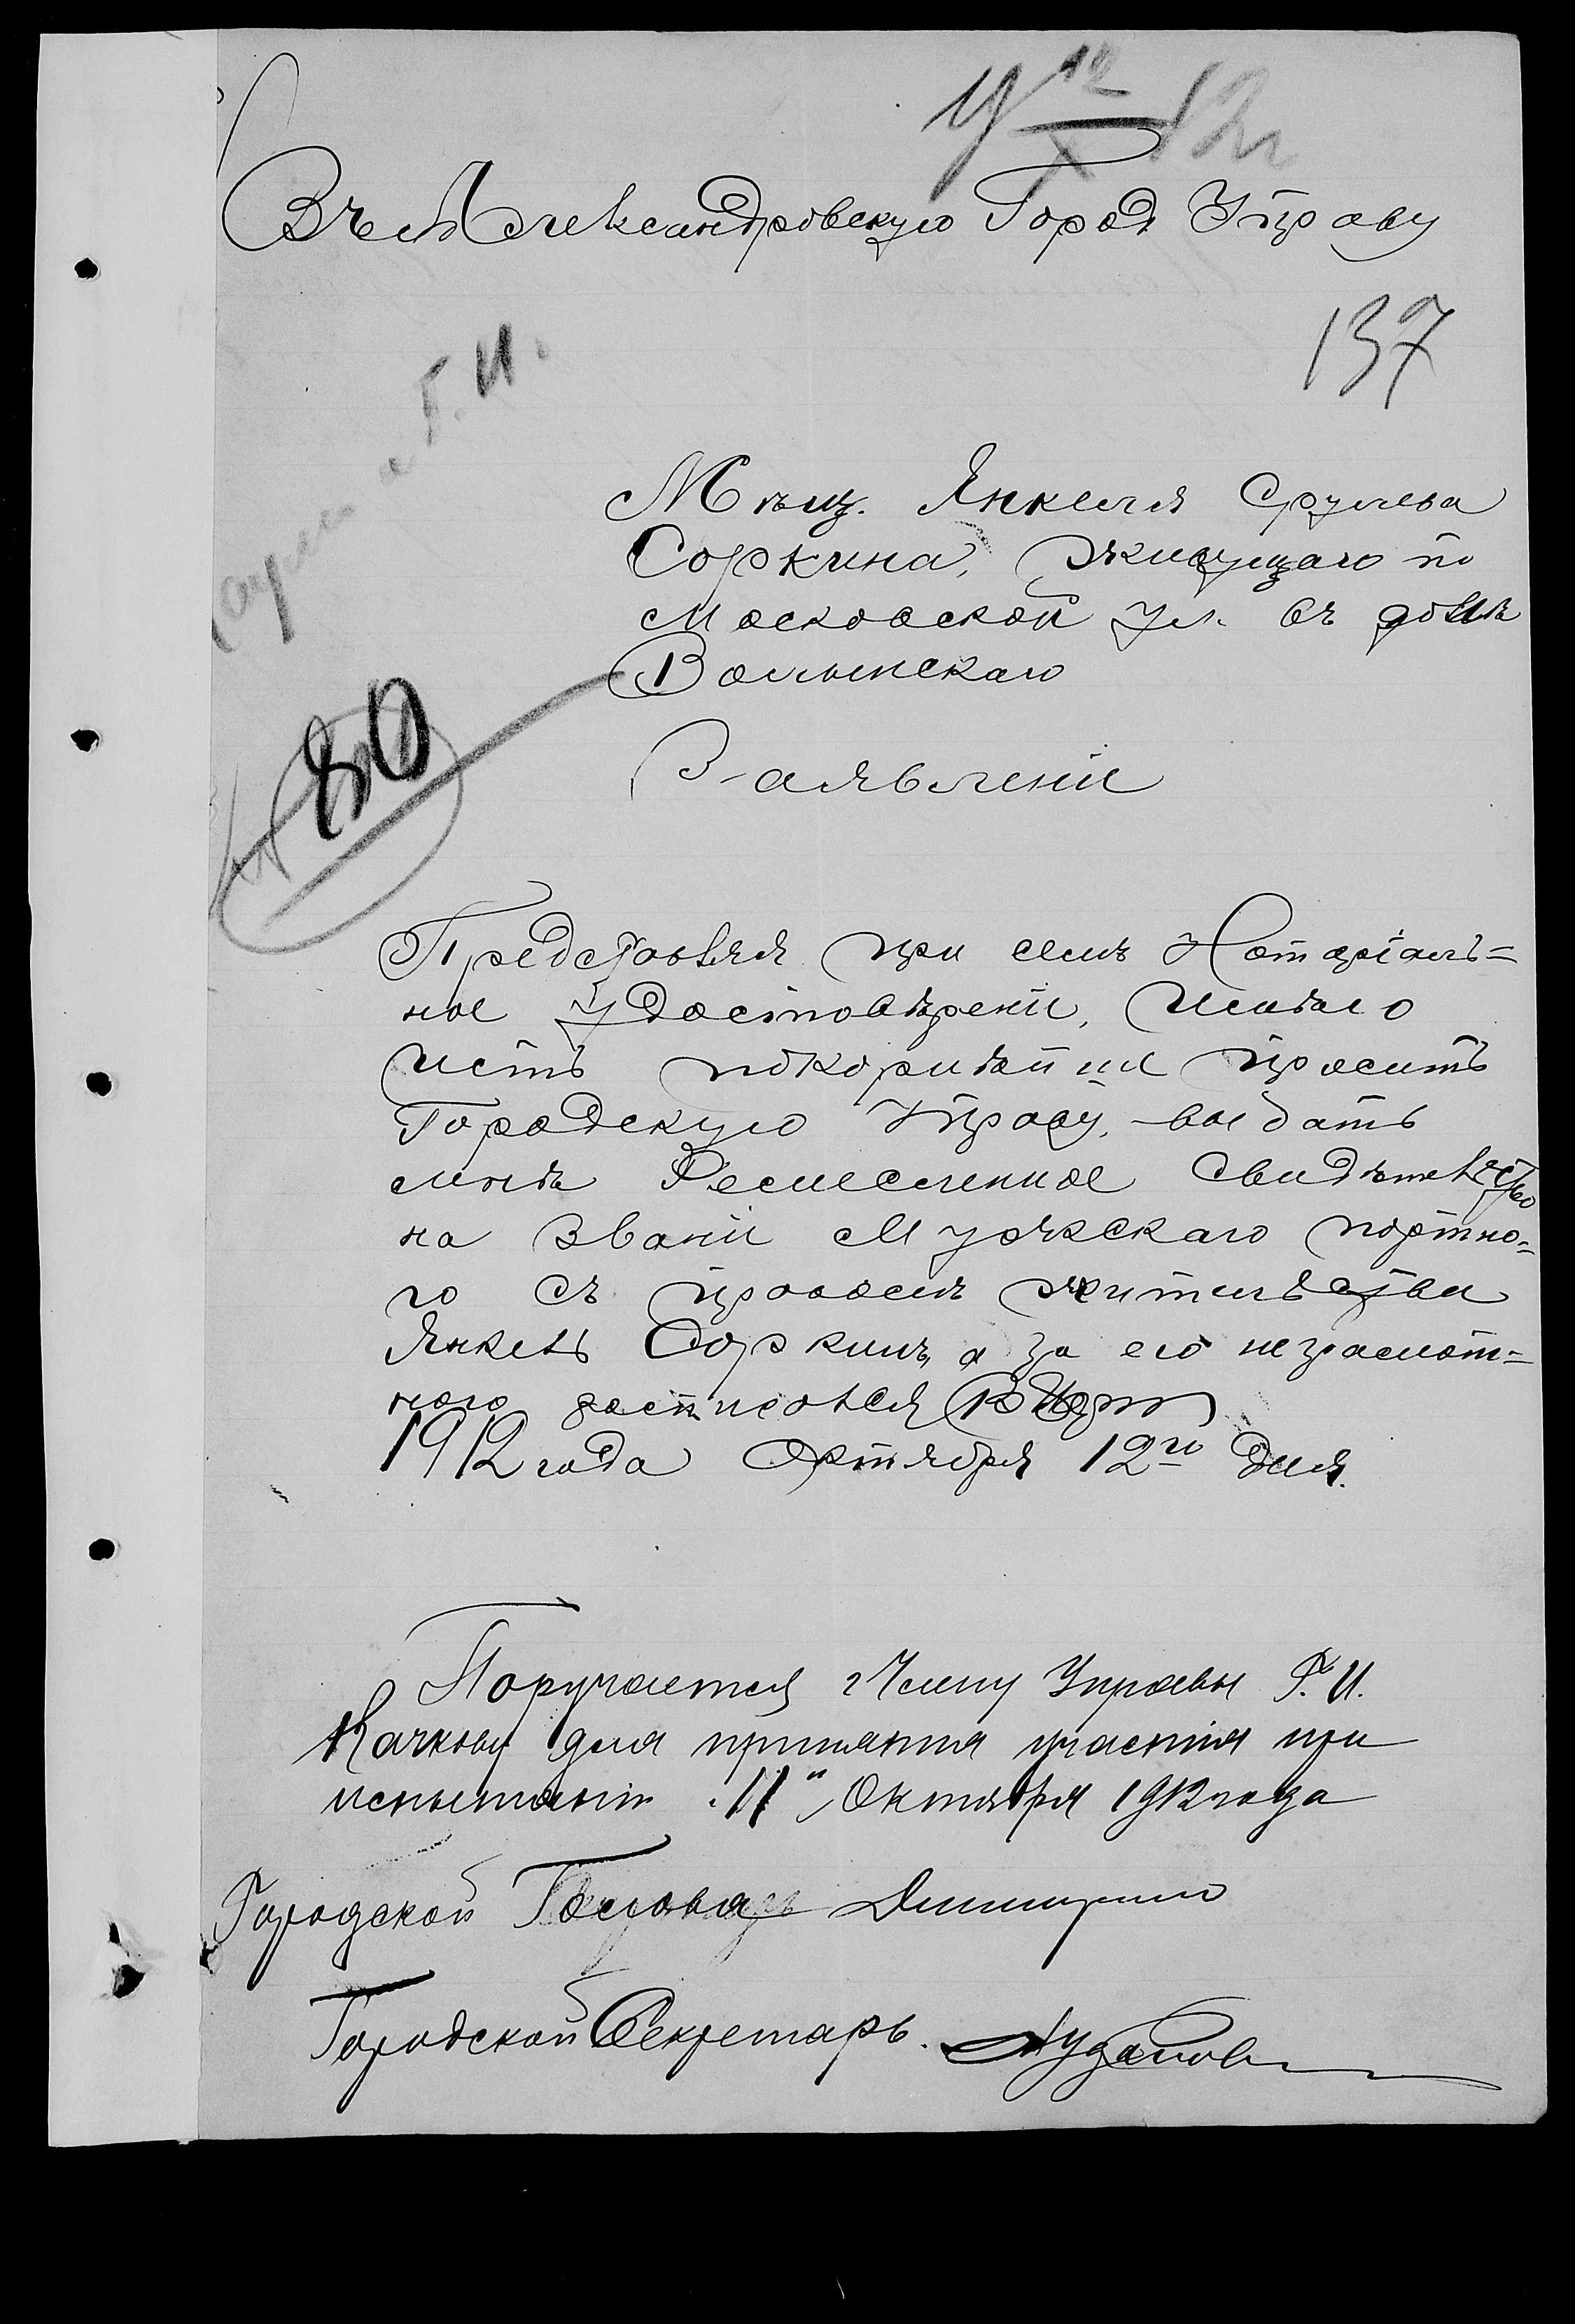 У 12/X 12 г
Въ Александровскую Город Управу
137
Г. И.
Мѣщ. Янкеля Срулева
Соркина, живущаго по
Московской ул. въ домѣ
Волынскаго
Заявленіе
Представляя при семъ Нотаріаль=
ное Удостовѣреніе, имѣю
честь покорнѣйше просить
Городскую Управу, выдать
мнѣ Ремесленное Свидѣтельство
на званіе Мужскаго портно=
го съ правомъ жительства
Янкель Соркинъ, а за его неграмот=
ного росписался
1912 года Октября 12го дня.
Поручается Члену Управы Г. И.
Качкову для принятія участія при
испытаніи „11" Октября 1912 года
Городской Голова
Городской Секретарь.